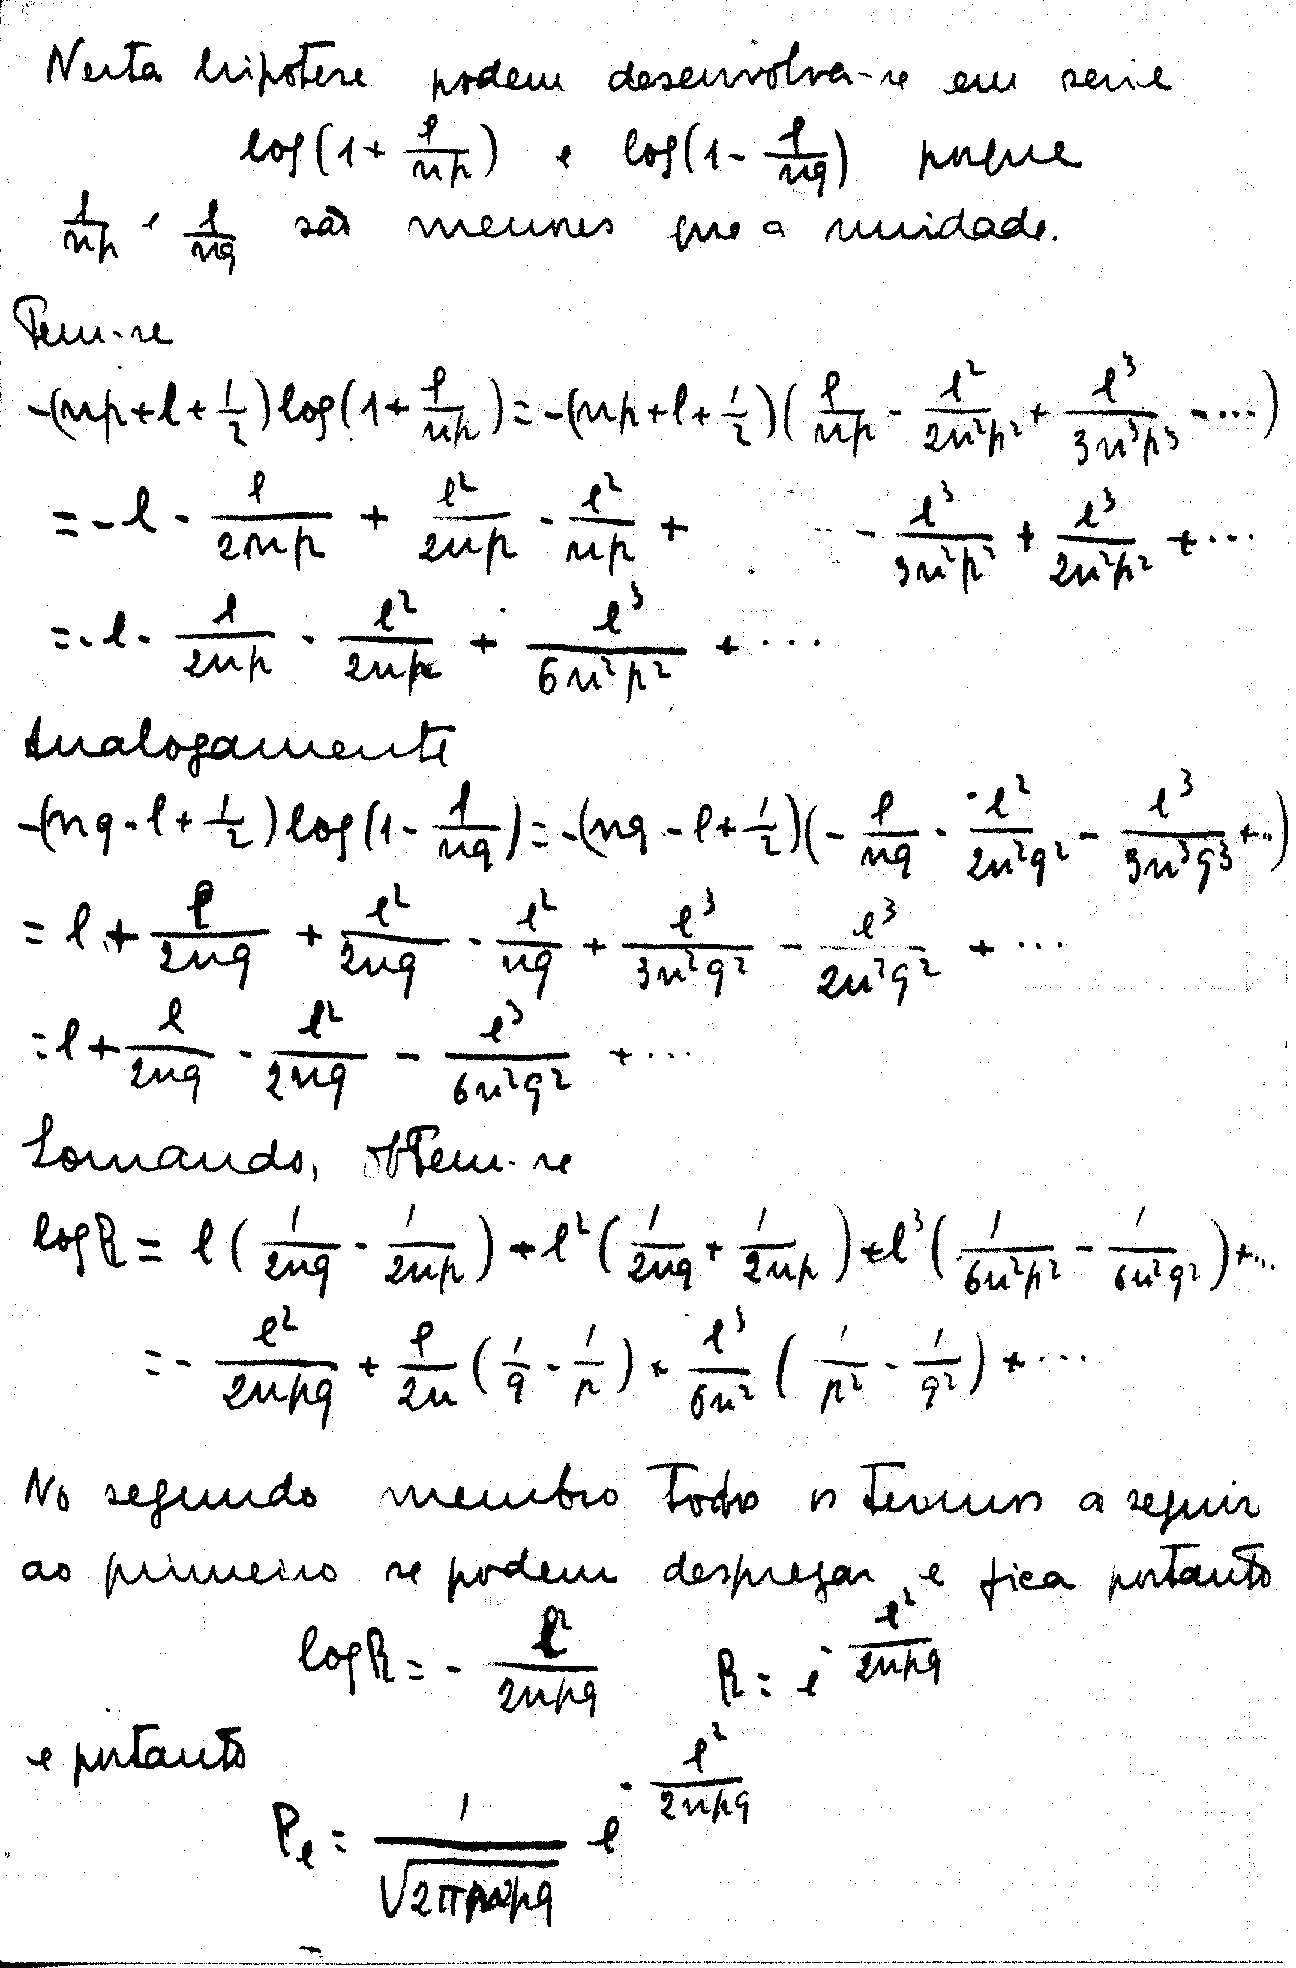 Nesta hipotese podem desenvolver-se em serie
log(1 + l/np) e log(1 - l/nq) porque
l/np e l/nq são menores que a unidade.
Tem-se
-(np + l + 1/2) log(1 + l/np) = -(np + l + 1/2)(l/np - l²/2n²p² + l³/3n³p³ - ...)
= -l - l/2np + l²/2np - l²/np + - l³/3n²p² + l³/2n²p² + ...
= -l - l/2np - l²/2np + l³/6n²p² + ...
Analogamente
-(nq - l + 1/2) log(1 - l/nq) = -(nq - l + 1/2)(- l/nq - l²/2n²q² - l³/3n³q³ + ..)
= l + l/2nq + l²/2nq - l²/nq + l³/3n²q² - l³/2n²q² + ...
= l + l/2nq - l²/2nq - l³/6n²q² + ...
Somando, obtem-se
log R = l(1/2nq - 1/2np) - l²(1/2nq + 1/2np) + l³(1/6n²p² - 1/6n²q²) + ...
= - l²/2npq + l/2n (1/q - 1/p) + l³/6n² (1/p² - 1/q²) + ...
No segundo membro todos os termos a seguir
ao primeiro se podem desprezar, e fica portanto
log R = - l²/2npq R = e^(- l²/2npq)
e portanto
P_l = 1/√(2πnpq) e^(- l²/2npq)